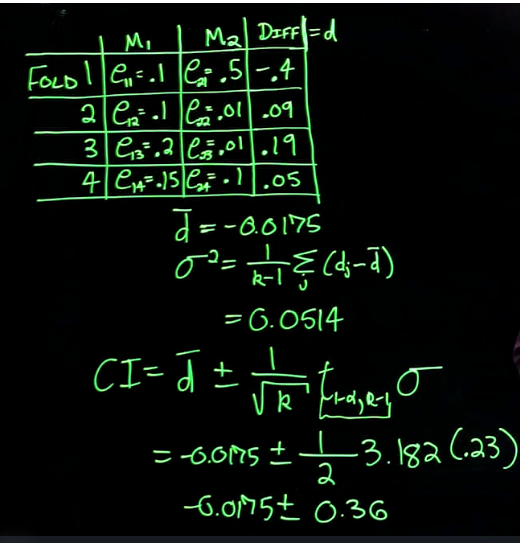 M₁ M₂ DIFF = d
FOLD 1 e₁₁=.1 e₂₁=.5 -.4
2 e₁₂=.1 e₂₂=.01 .09
3 e₁₃=.2 e₂₃=.01 .19
4 e₁₄=.15 e₂₄=.1 .05
d̄ = -0.0175
σ² = 1/(k-1) Σⱼ (dⱼ-d̄)
= 0.0514
CI = d̄ ± 1/√k t₁₋α,ₖ₋₁ σ
= -0.0175 ± 1/2 3.182 (.23)
-0.0175 ± 0.36